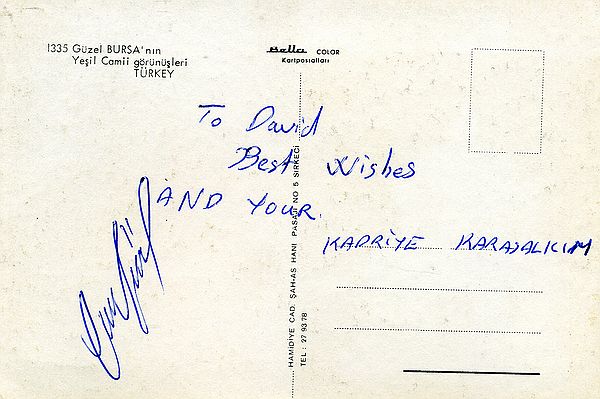 1335 Güzel BURSA'nın
Yeşil Camii görünüşleri
TÜRKEY
COLOR
Kartpostalları
To David
Best Wishes
AND YOUR.
KADRİYE KARAYALICIM
HAMİDİYE CAD. ŞAH-AS HANI PASAJI NO 5 SİRKECİ
TEL : 27 93 78